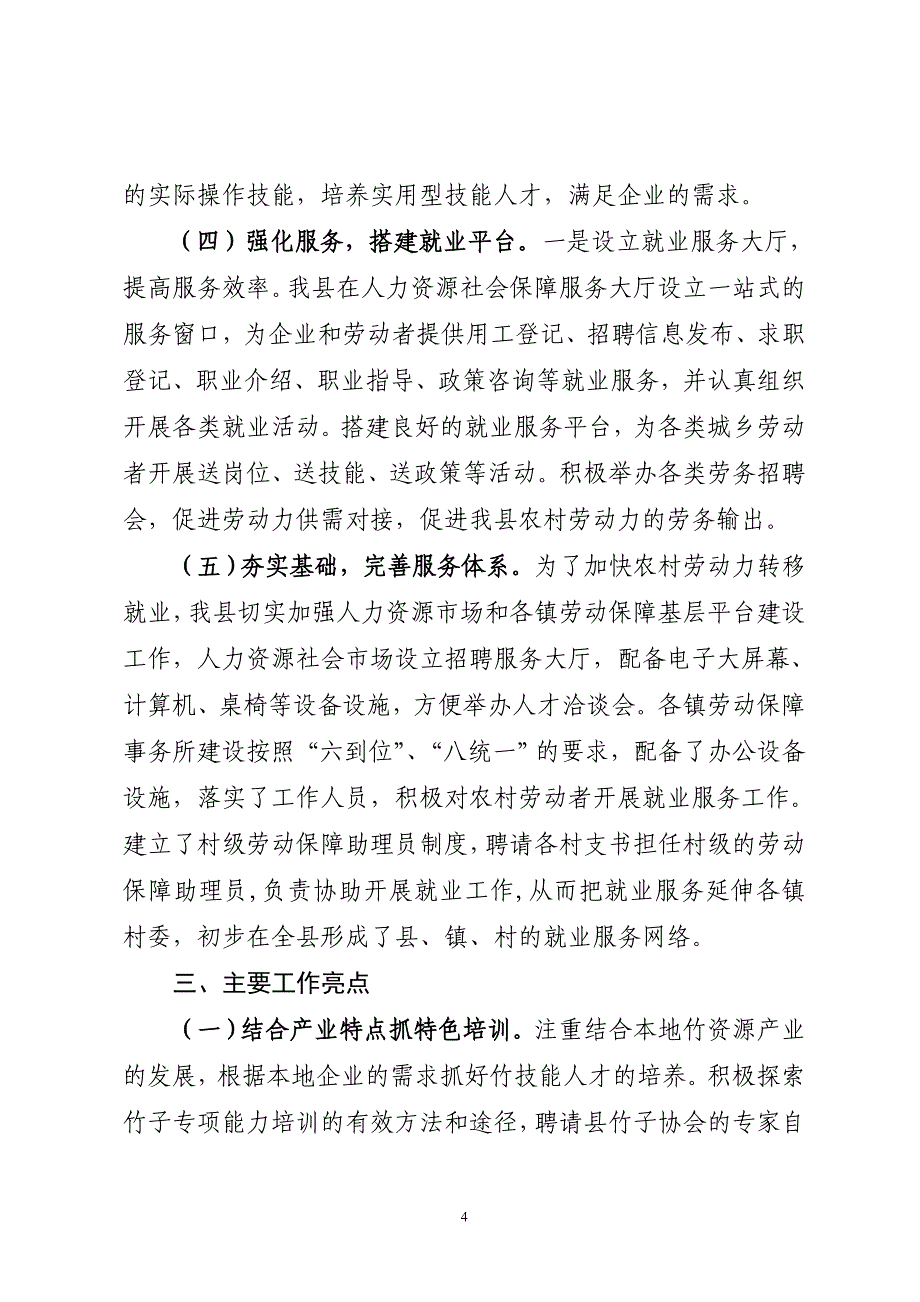 的实际操作技能，培养实用型技能人才，满足企业的需求。
（四）强化服务，搭建就业平台。一是设立就业服务大厅，
提高服务效率。我县在人力资源社会保障服务大厅设立一站式的
服务窗口，为企业和劳动者提供用工登记、招聘信息发布、求职
登记、职业介绍、职业指导、政策咨询等就业服务，并认真组织
开展各类就业活动。搭建良好的就业服务平台，为各类城乡劳动
者开展送岗位、送技能、送政策等活动。积极举办各类劳务招聘
会，促进劳动力供需对接，促进我县农村劳动力的劳务输出。
（五）夯实基础，完善服务体系。为了加快农村劳动力转移
就业，我县切实加强人力资源市场和各镇劳动保障基层平台建设
工作，人力资源社会市场设立招聘服务大厅，配备电子大屏幕、
计算机、桌椅等设备设施，方便举办人才洽谈会。各镇劳动保障
事务所建设按照“六到位”、“八统一”的要求，配备了办公设备
设施，落实了工作人员，积极对农村劳动者开展就业服务工作。
建立了村级劳动保障助理员制度，聘请各村支书担任村级的劳动
保障助理员，负责协助开展就业工作，从而把就业服务延伸各镇
村委，初步在全县形成了县、镇、村的就业服务网络。
三、主要工作亮点
（一）结合产业特点抓特色培训。注重结合本地竹资源产业
的发展，根据本地企业的需求抓好竹技能人才的培养。积极探索
竹子专项能力培训的有效方法和途径，聘请县竹子协会的专家自
4